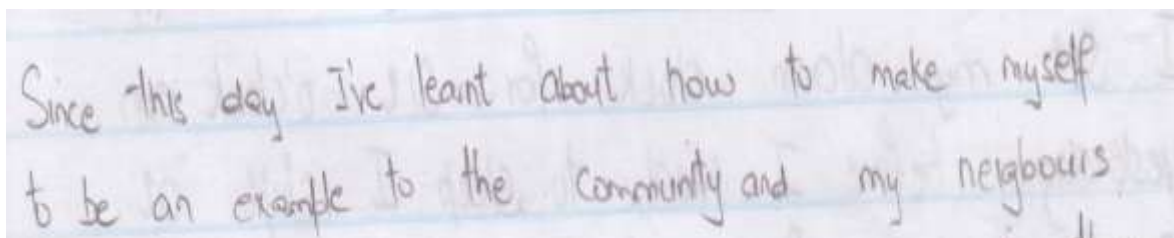 Since this day I've learnt about how to make myself
to be an example to the community and my neigbours.